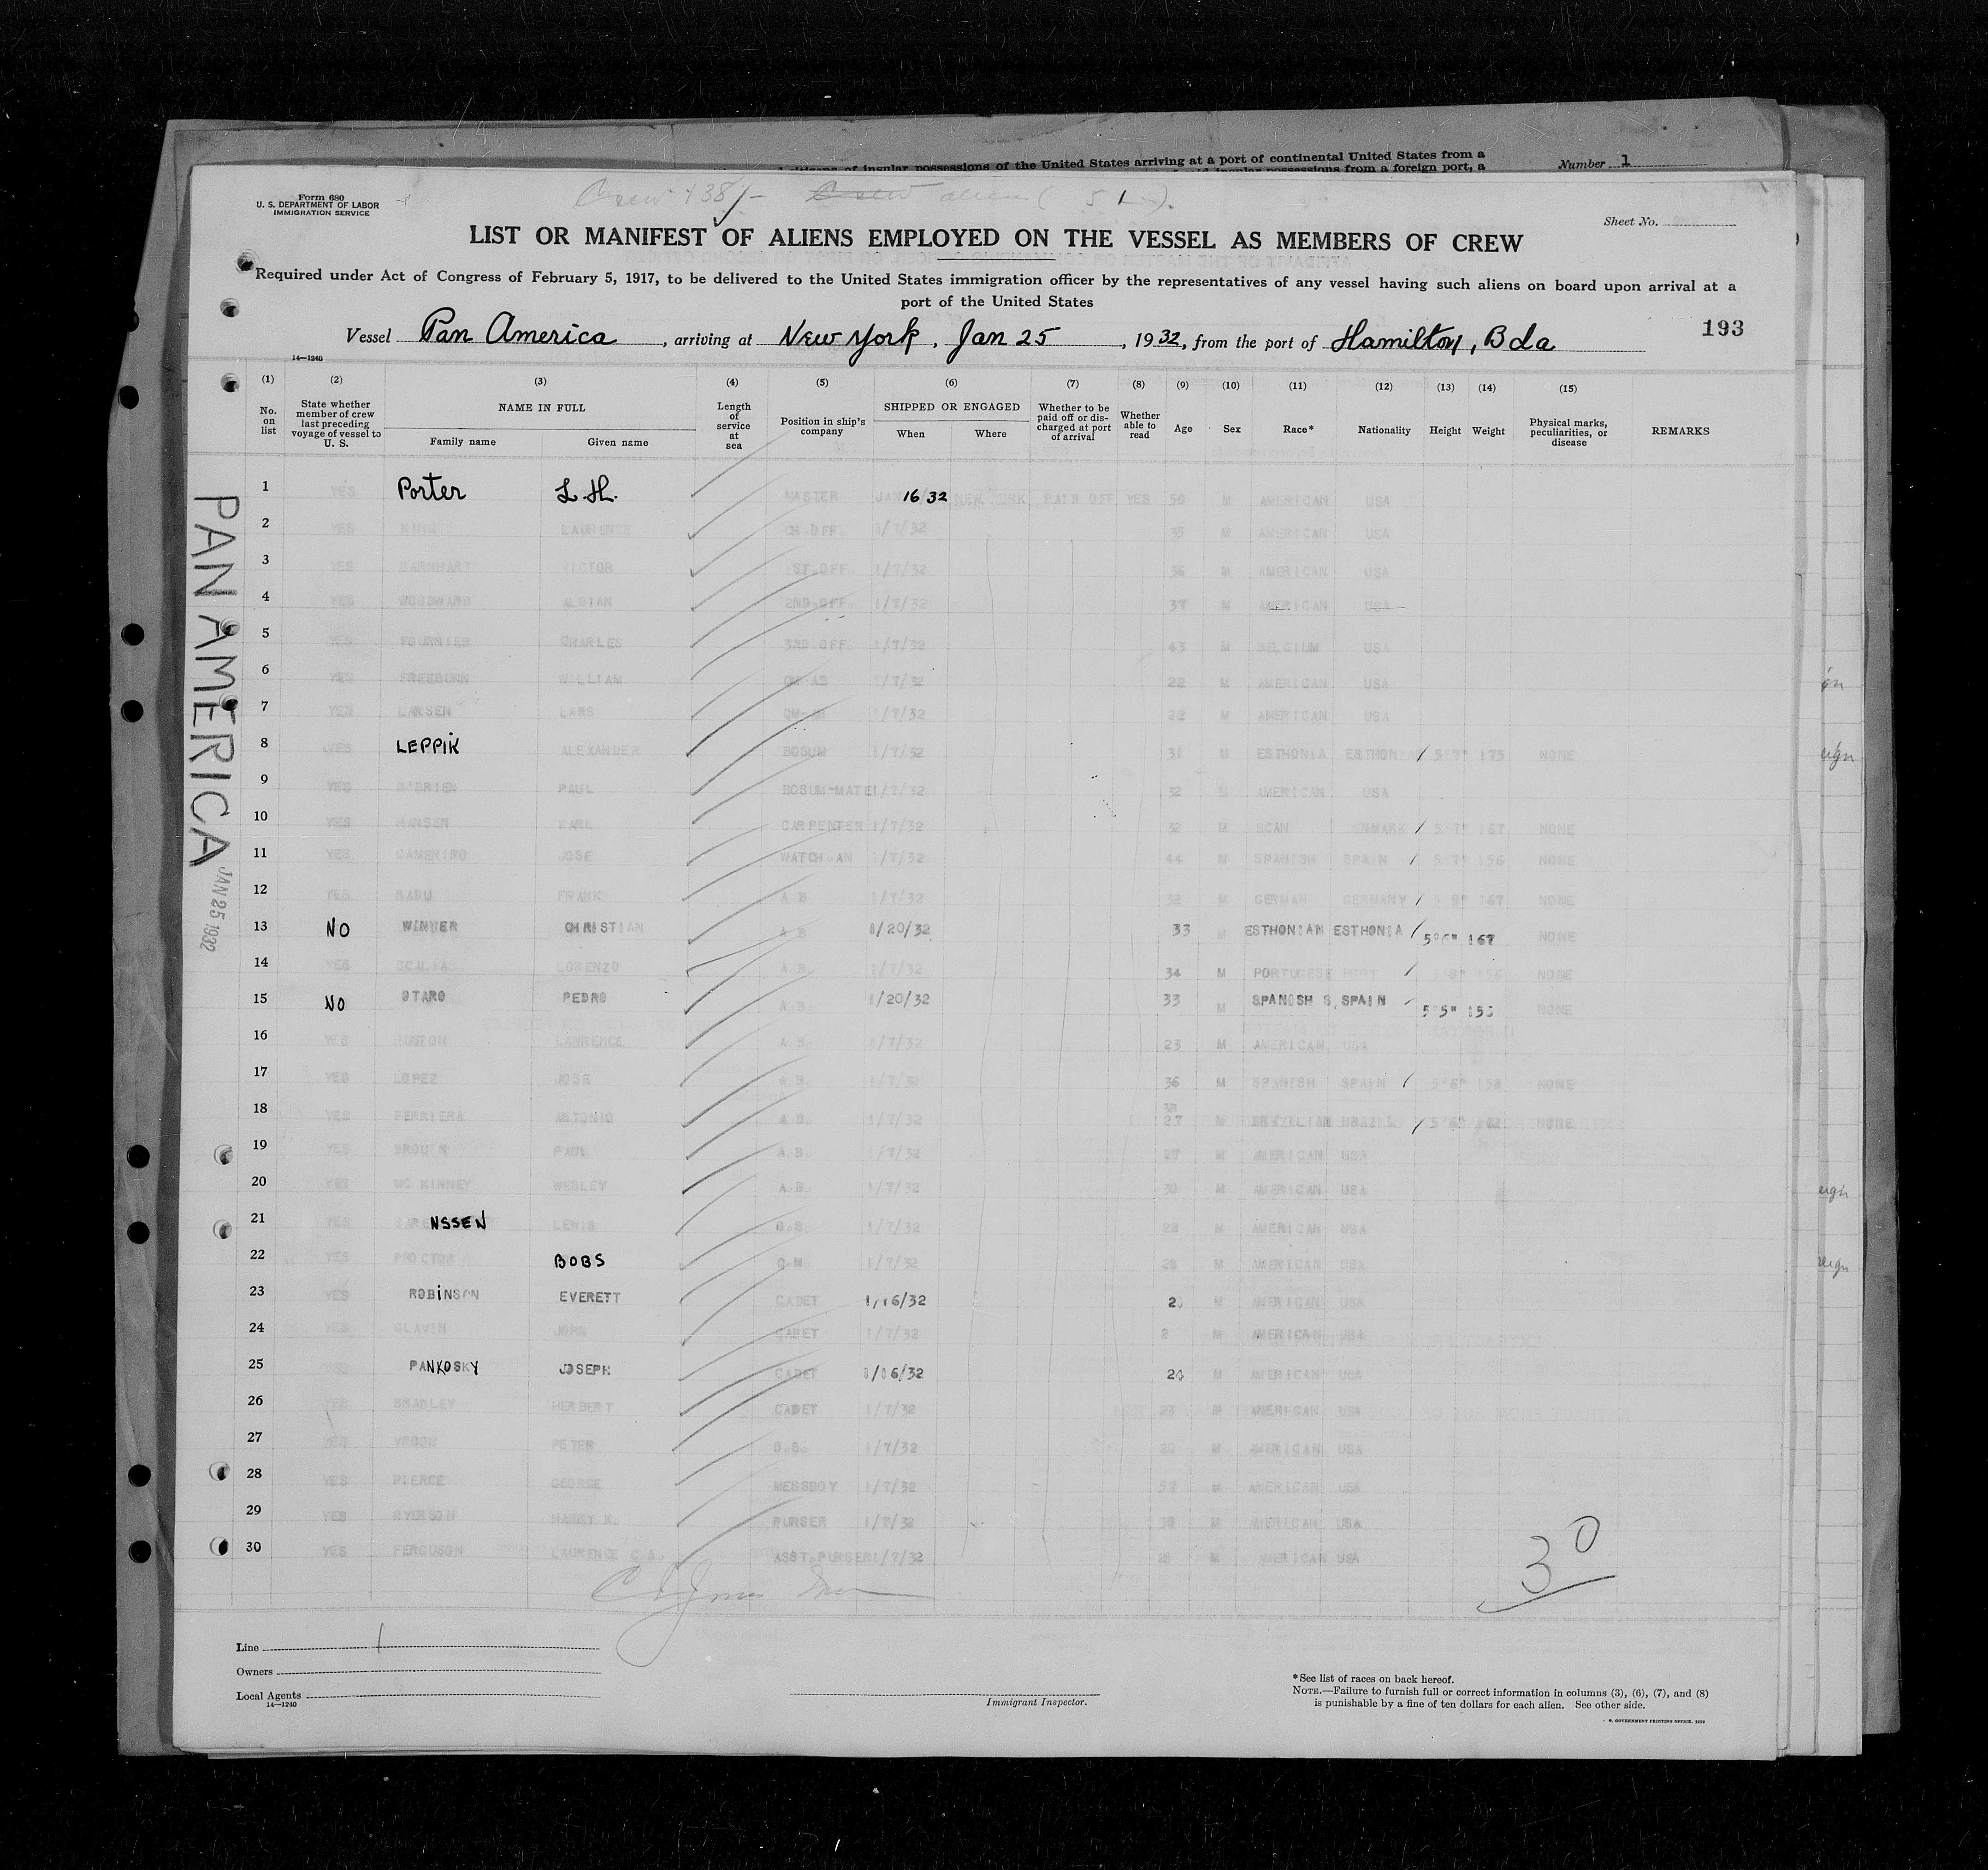 citizens of insular possessions of the United States arriving at a port of continental United States from a
Number 1
insular possessions from a foreign port, a
Form 680
U. S. DEPARTMENT OF LABOR
IMMIGRATION SERVICE
Crew 438/- Crew alien ( 51 ).
Sheet No.
LIST OR MANIFEST OF ALIENS EMPLOYED ON THE VESSEL AS MEMBERS OF CREW
Required under Act of Congress of February 5, 1917, to be delivered to the United States immigration officer by the representatives of any vessel having such aliens on board upon arrival at a
port of the United States
193
Vessel Pan America, arriving at New York, Jan 25, 1932, from the port of Hamilton, Bda
14—1240
(1) (2) (3) (4) (5) (6) (7) (8) (9) (10) (11) (12) (13) (14) (15)
No. on list
State whether member of crew last preceding voyage of vessel to U. S.
NAME IN FULL
Family name Given name
Length of service at sea
Position in ship's company
SHIPPED OR ENGAGED
When Where
Whether to be paid off or discharged at port of arrival
Whether able to read
Age Sex Race* Nationality Height Weight
Physical marks, peculiarities, or disease
REMARKS
1 YES Porter L.H. MASTER JAN 16 32 NEW YORK PAID OFF YES 50 M AMERICAN USA
2 YES KING LAURENCE CH.OFF. 1/7/32 35 M AMERICAN USA
3 YES BARNHART VICTOR 1ST.OFF 1/7/32 36 M AMERICAN USA
4 YES WOODWARD ALBIAN 2ND.OFF. 1/7/32 37 M AMERICAN USA
5 YES FOURNIER CHARLES 3RD OFF 1/7/32 43 M BELGIUM USA
6 YES FREEBURN WILLIAM QM-AB 1/7/32 22 M AMERICAN USA
7 YES LARSEN LARS QM-AB 1/7/32 22 M AMERICAN USA
8 YES LEPPIK ALEXANDER BOSUM 1/7/32 31 M ESTHONIA ESTHONIA 5"7" 175 NONE
9 YES O'BRIEN PAUL BOSUM-MATE 1/7/32 32 M AMERICAN USA
10 YES HANSEN KARL CARPENTER 1/7/32 32 M SCAN DENMARK 5"7" 167 NONE
11 YES CAMERINO JOSE WATCHMAN 1/7/32 44 M SPANISH SPAIN 5"7" 156 NONE
12 YES BABU FRANK A B 1/7/32 32 M GERMAN GERMANY 5"9" 167 NONE
13 NO CHRISTIAN A B 1/20/32 33 M ESTHONIAN ESTHONIA 5"6" 167 NONE
14 YES LORENZO A.B. 1/7/32 34 M PORTUGESE PORT 5"8" 156 NONE
15 NO OTARO PEDRO A.B. 1/20/32 33 M SPANISH S, SPAIN 5"5" 155 NONE
16 YES HUSTON LAWRENCE A.B. 1/7/32 23 M AMERICAN USA
17 YES LOPEZ JOSE A.B. 1/7/32 36 M SPANISH SPAIN 5"6" 158 NONE
18 YES FERRIERA ANTONIO A.B. 1/7/32 27 M BRAZILIAN BRAZIL 5"6" 162 NONE
19 YES BROWN PAUL A.B. 1/7/32 27 M AMERICAN USA
20 YES MC KINNEY WESLEY A.B. 1/7/32 30 M AMERICAN USA
21 YES NSSEN LEWIS O.S. 1/7/32 28 M AMERICAN USA
22 YES PROCTOR BOBS Q.M. 1/7/32 28 M AMERICAN USA
23 YES ROBINSON EVERETT CADET 1/16/32 M AMERICAN USA
24 YES GLAVIN JOHN CADET 1/7/32 M AMERICAN USA
25 PANKOSKY JOSEPH CADET 1/16/32 24 M AMERICAN USA
26 YES BRADLEY HERBERT CADET 1/7/32 23 M AMERICAN USA
27 YES VROOM PETER O.S. 1/7/32 20 M AMERICAN USA
28 YES PIERCE GEORGE MESSBOY 1/7/32 57 M AMERICAN USA
29 YES RYERSON HARRY K. PURSER 1/7/32 30 M AMERICAN USA
30 YES FERGUSON LAURENCE C A. ASST.PURSER 1/7/32 M AMERICAN USA
PAN AMERICA
JAN 25 1932
30
Line
Owners
Local Agents
14—1240
Immigrant Inspector.
*See list of races on back hereof.
NOTE.—Failure to furnish full or correct information in columns (3), (6), (7), and (8)
is punishable by a fine of ten dollars for each alien. See other side.
GOVERNMENT PRINTING OFFICE